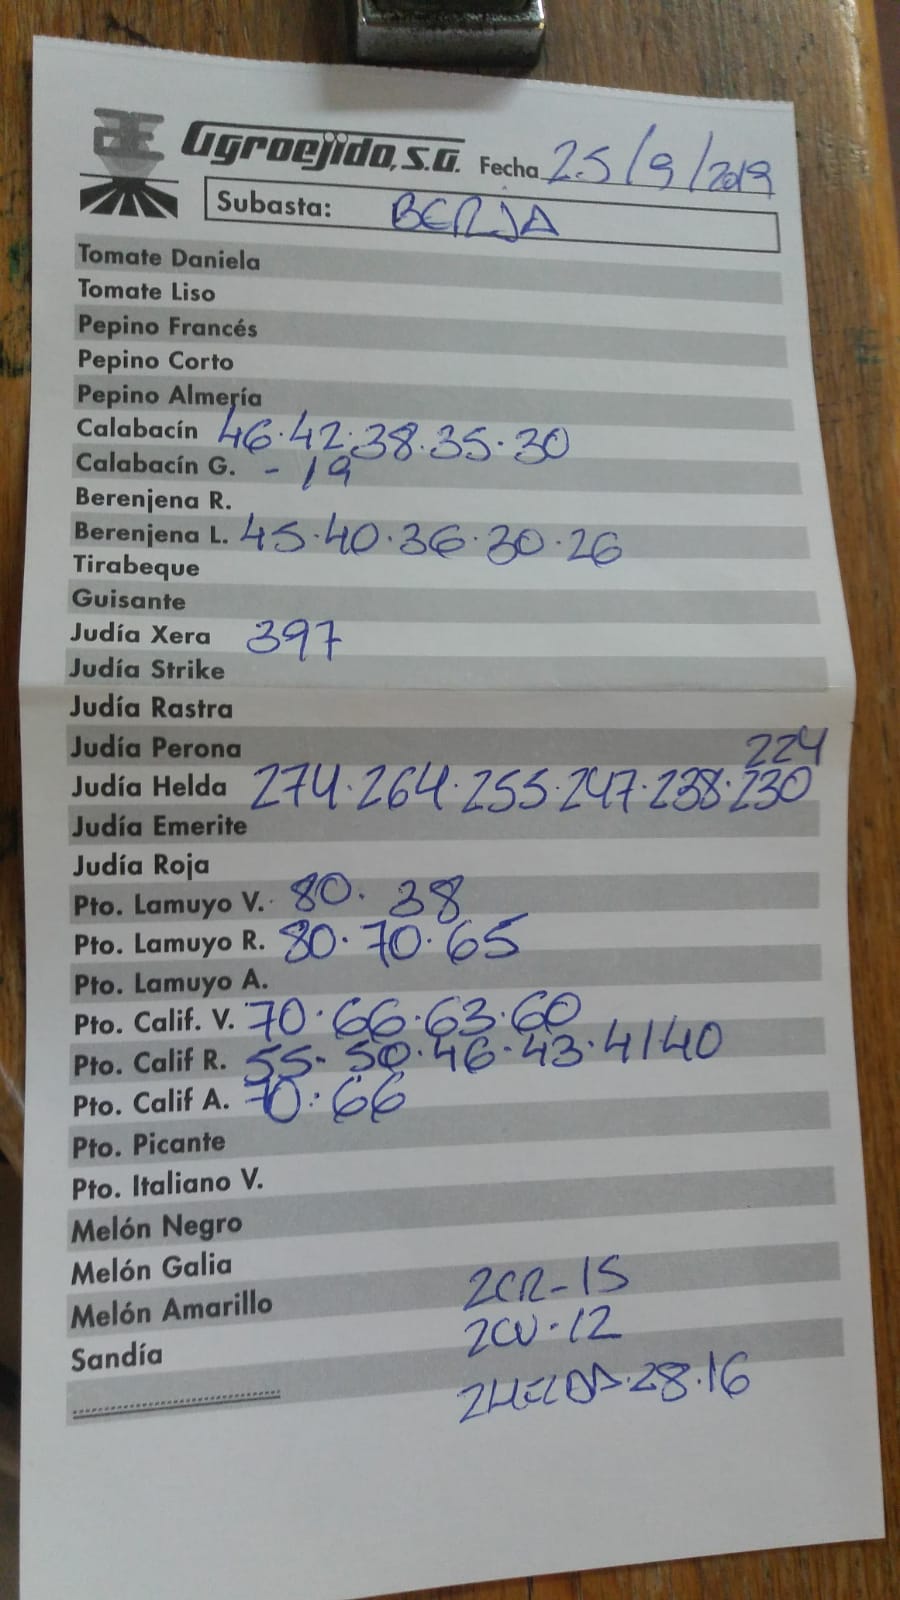 AE Agroejido, S.A. Fecha 25/9/2019
Subasta: BERJA
Tomate Daniela
Tomate Liso
Pepino Francés
Pepino Corto
Pepino Almería
Calabacín 46.42.38.35.30
Calabacín G. - 19
Berenjena R.
Berenjena L. 45.40.36.30.26
Tirabeque
Guisante
Judía Xera 397
Judía Strike
Judía Rastra
Judía Perona 224
Judía Helda 274.264.255.247.238.230
Judía Emerite
Judía Roja
Pto. Lamuyo V. 80. 38
Pto. Lamuyo R. 80.70.65
Pto. Lamuyo A.
Pto. Calif. V. 70.66.63.60
Pto. Calif R. 55-50.46.43.41 40
Pto. Calif A. 70.66
Pto. Picante
Pto. Italiano V.
Melón Negro
Melón Galia
Melón Amarillo 2CR-15
Sandía 2CV.12
2HELDA.28.16